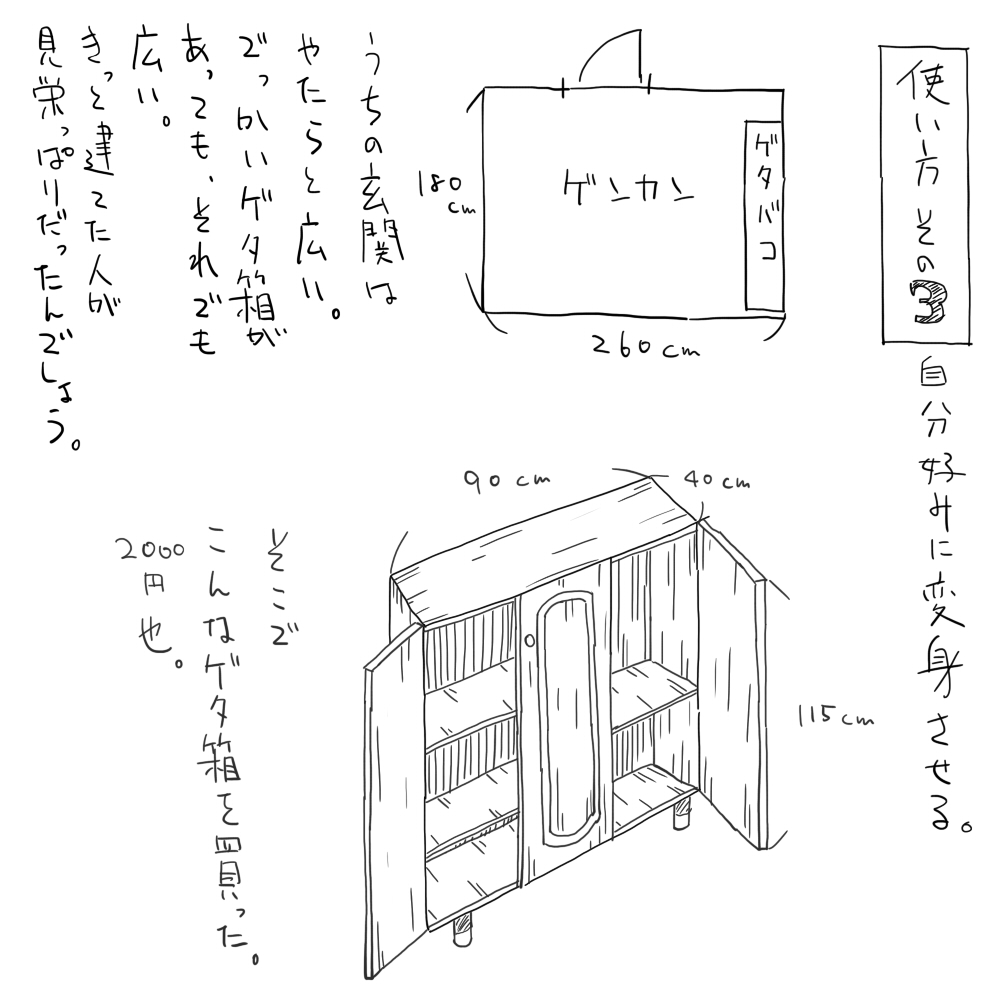 使い方その3
自分好みに変身させる。
ゲタバコ
ゲンカン
180
cm
260cm
うちの玄関は
やたらと広い。
でっかいゲタ箱が
あっても、それでも
広い。
きっと建てた人が
見栄っぱりだったんでしょう。
90cm
40cm
115cm
そこで
こんなゲタ箱を買った。
2000
円也。